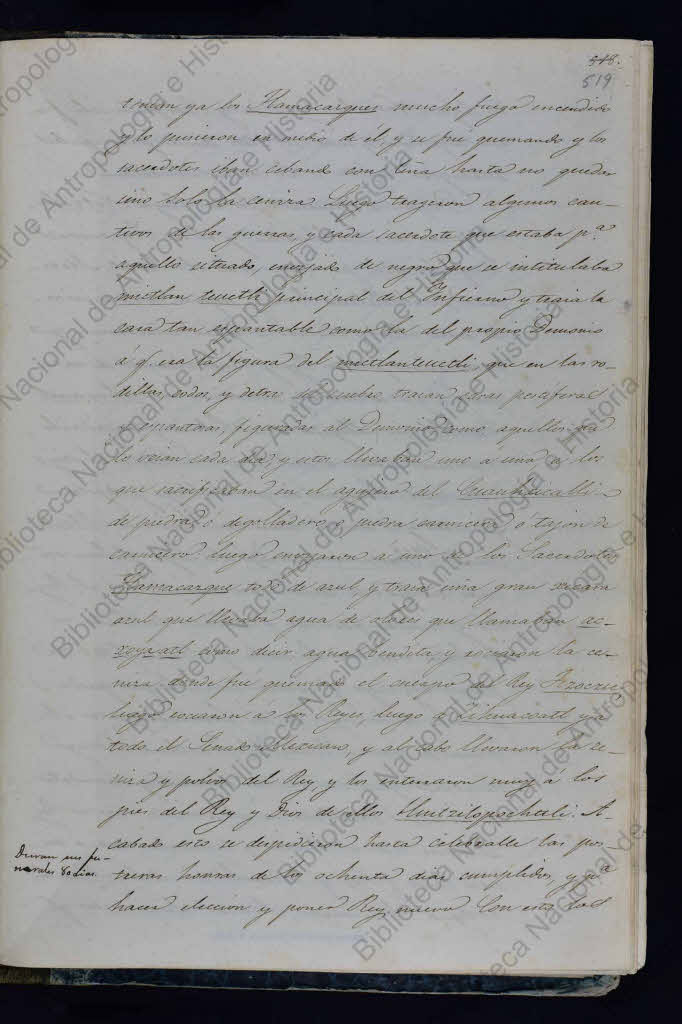 548.
519
tenian ya los Tlamacazques mucho fuego encendido
y lo pusieron en medio de él, y se fué quemando y los
sacerdotes iban cebando con leña hasta no quedar
sino solo la ceniza. Luego trageron algunos cau-
tivos de las guerras, y cada sacerdote que estaba pª.
aquello situado, envijado de negro que se intitulaba
mictlan teuctli principal del Infierno y traia la
cara tan espantable como la del propio Demonio
á q. era la figura del mictlanteuctli, que en las ro-
dillas, codos, y detras traian caras
espantosas, figuradas al Demonio, como aquellos
lo veian cada dia, y estos llevaban uno a uno á los
que sacrificaban en el agujero del Cuauhxicalli
de piedra, ó degolladero, ó piedra carnicera ó tajon de
carnicero, luego envijaron á uno de los Sacerdotes
Tlamacazque todo de azul, y traia una gran xicara
azul que llevaba agua de olores que llamaban ac-
xoyaatl como decir agua bendita y rociaron la ce-
niza donde fue quemado el cuerpo del Rey
luego rociaron a los Reyes, luego á Cihuacoatl y á
todo el Senado Mexicano, y al cabo llevaron la ce-
niza y polvos del Rey, y los enterraron muy á los
pies del Rey y Dios de ellos Huitzilopochtli. A-
cabado esto se despidieron hasta celebralle las pos-
treras honras de los ochenta dias cumplidos, y pª
hacer eleccion y poner Rey nuevo. Con esto
Duran sus fu-
nerales 80 dias.
Biblioteca Nacional de Antropología e Historia